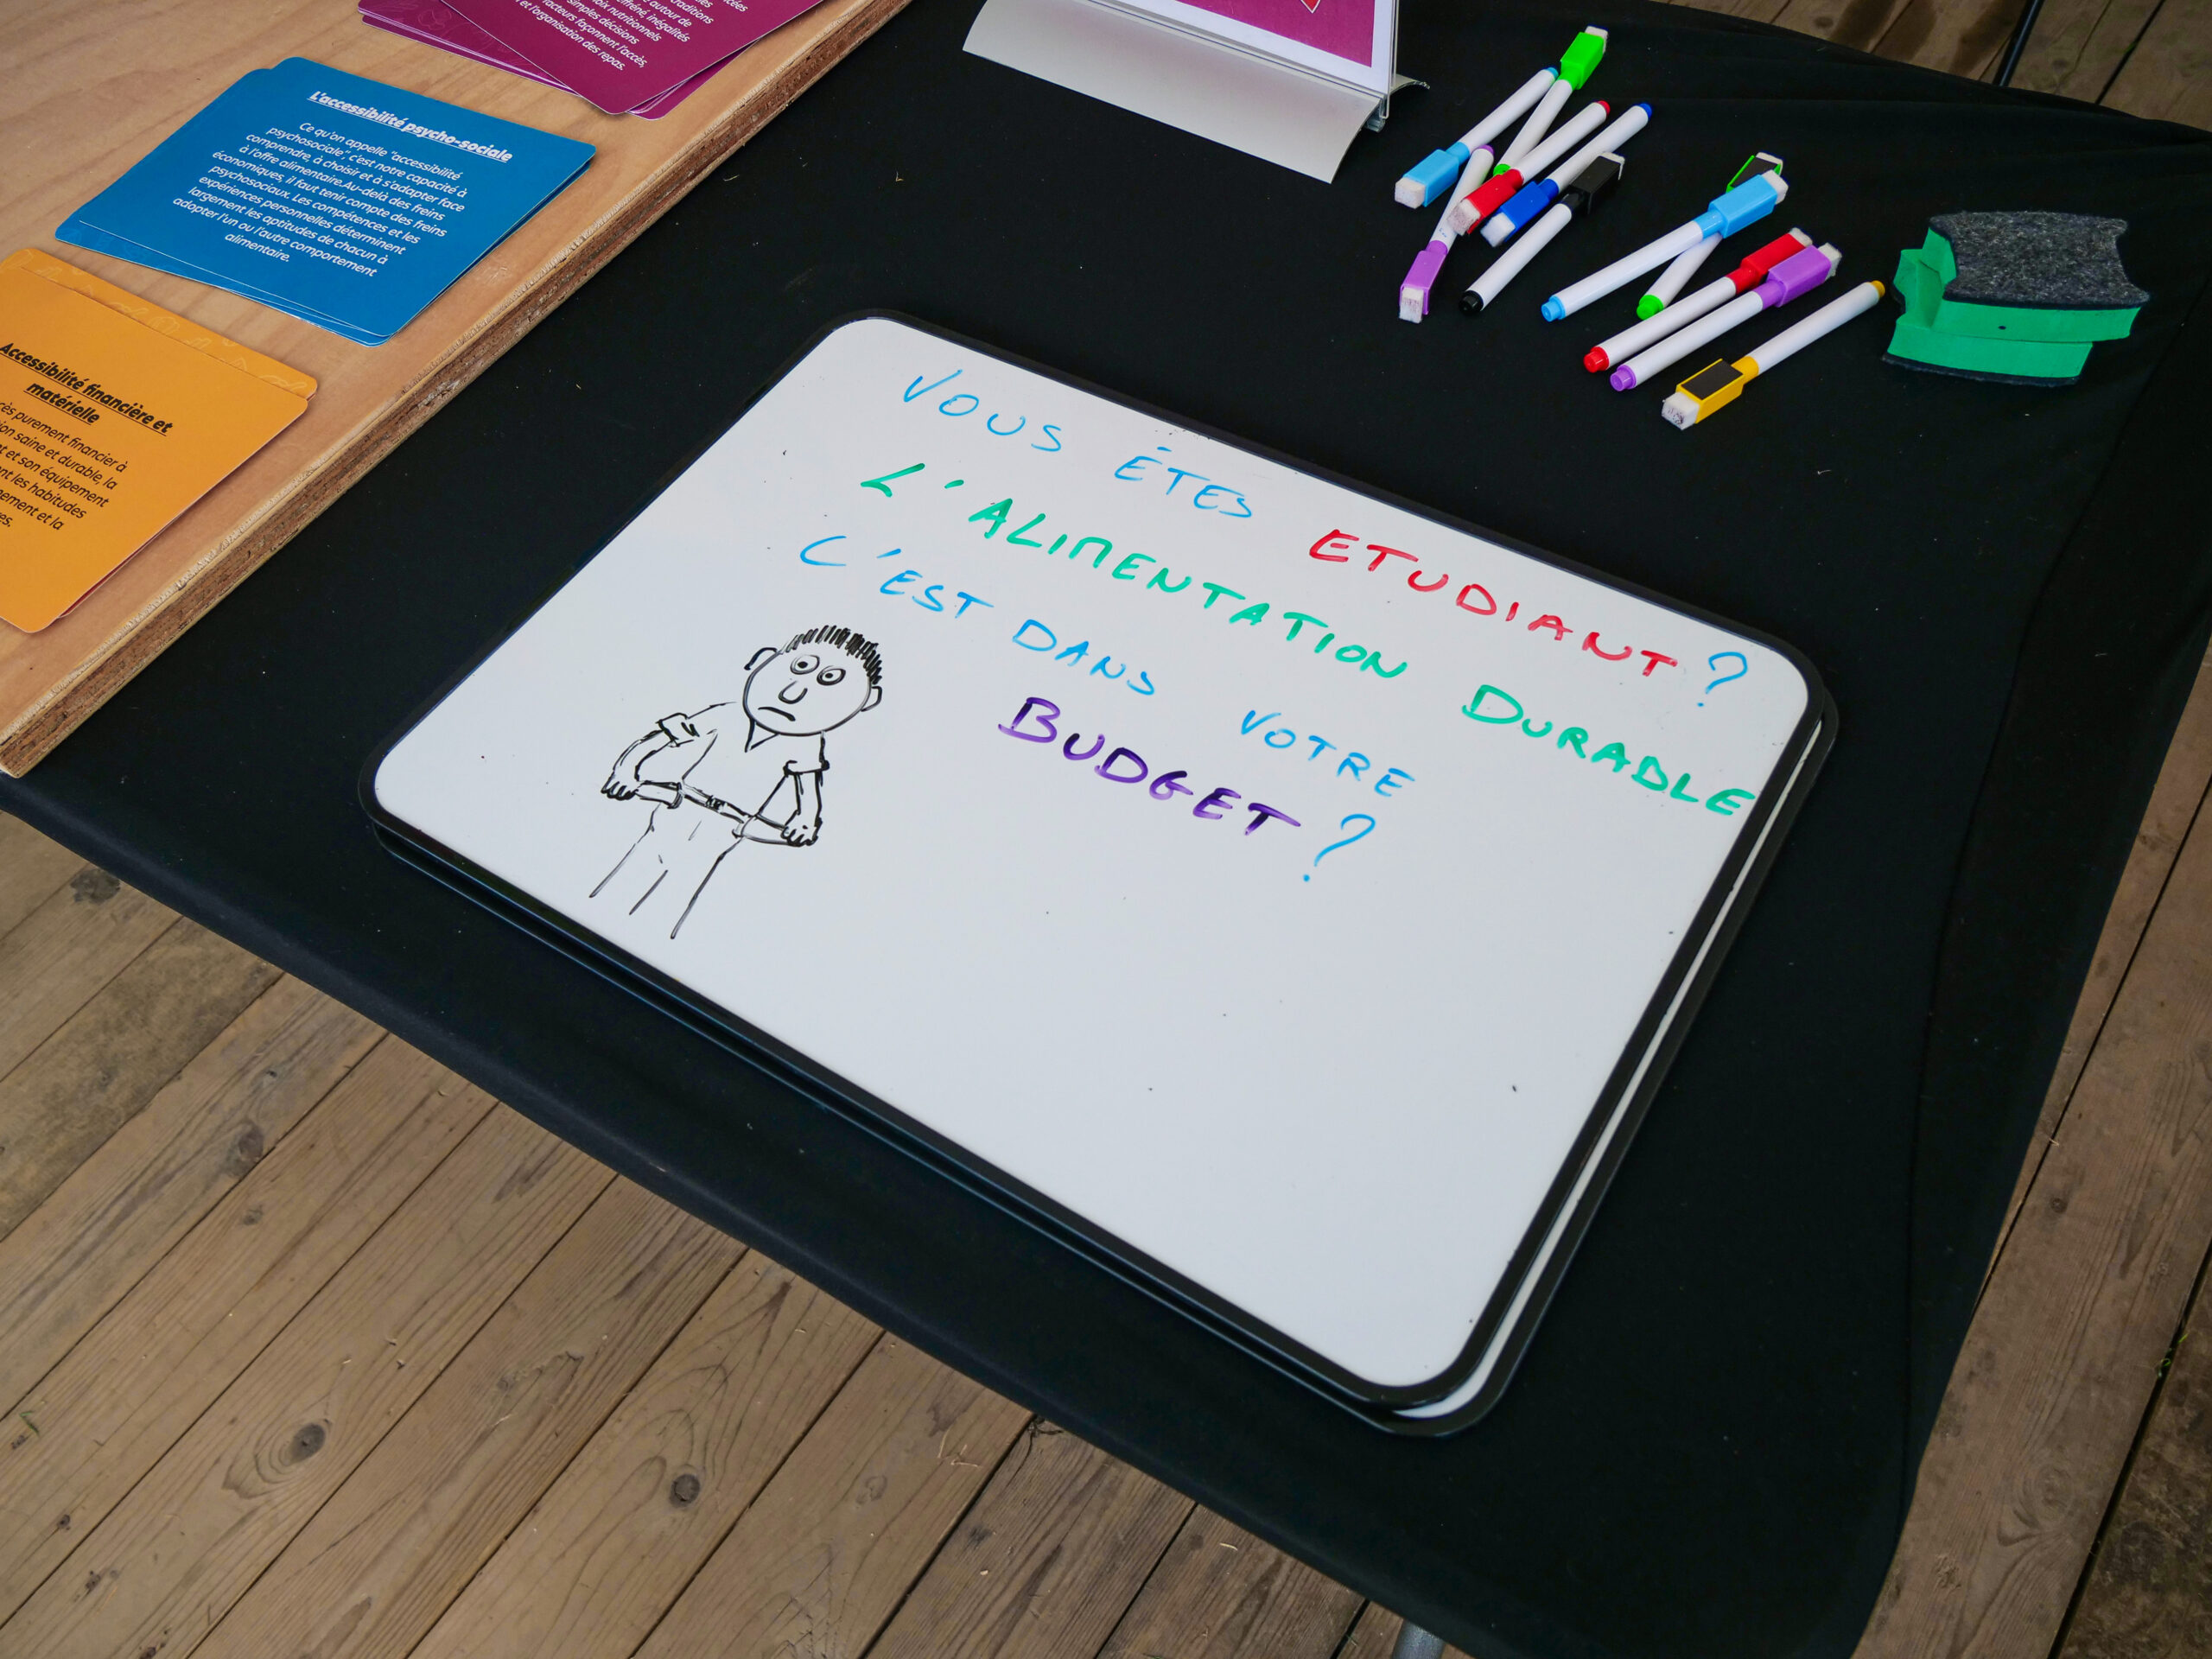 traditions
autour de
effréné, inégalités
choix nutritionnels
simples décisions
acteurs façonnent l'accès,
et l'organisation des repas.
L'accessibilité psycho-sociale
Ce qu'on appelle "accessibilité
psychosociale", c'est notre capacité à
comprendre, à choisir et à s'adapter face
à l'offre alimentaire.Au-delà des freins
économiques, il faut tenir compte des freins
psychosociaux. Les compétences et les
expériences personnelles déterminent
largement les aptitudes de chacun à
adopter l'un ou l'autre comportement
alimentaire.
Accessibilité financière et
matérielle
purement financier à
saine et durable, la
et son équipement
les habitudes
et la
VOUS ÊTES ETUDIANT ?
L'ALIMENTATION DURABLE
C'EST DANS VOTRE
BUDGET ?